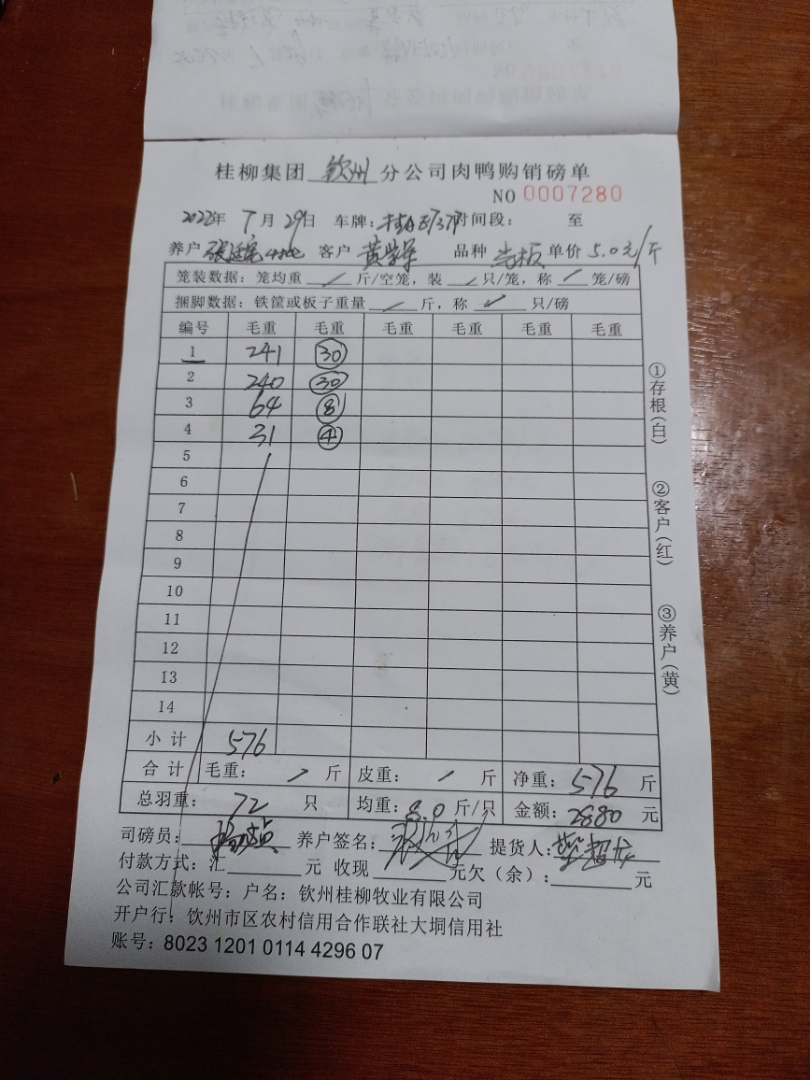 桂柳集团 钦州 分公司肉鸭购销磅单
NO 0007280
2022年 7月29日 车牌: 时间段: 至
养户 客户 黄 品种 单价 5.0元/斤
笼装数据: 笼均重 / 斤/空笼, 装 / 只/笼, 称 / 笼/磅
捆脚数据: 铁筐或板子重量 / 斤, 称 只/磅
编号 毛重 毛重 毛重 毛重 毛重 毛重
1 241 30
2 240 30
3 64 8
4 31 4
5
6
7
8
9
10
11
12
13
14
小计 576
合计 毛重: / 斤 皮重: / 斤 净重: 576 斤
总羽重: 72 只 均重: 8.0 斤/只 金额: 2880 元
司磅员: 养户签名: 提货人:
付款方式: 汇 元 收现 元欠(余): 元
公司汇款帐号: 户名: 钦州桂柳牧业有限公司
开户行: 钦州市区农村信用合作联社大垌信用社
账号: 8023 1201 0114 4296 07
①存根(白)
②客户(红)
③养户(黄)